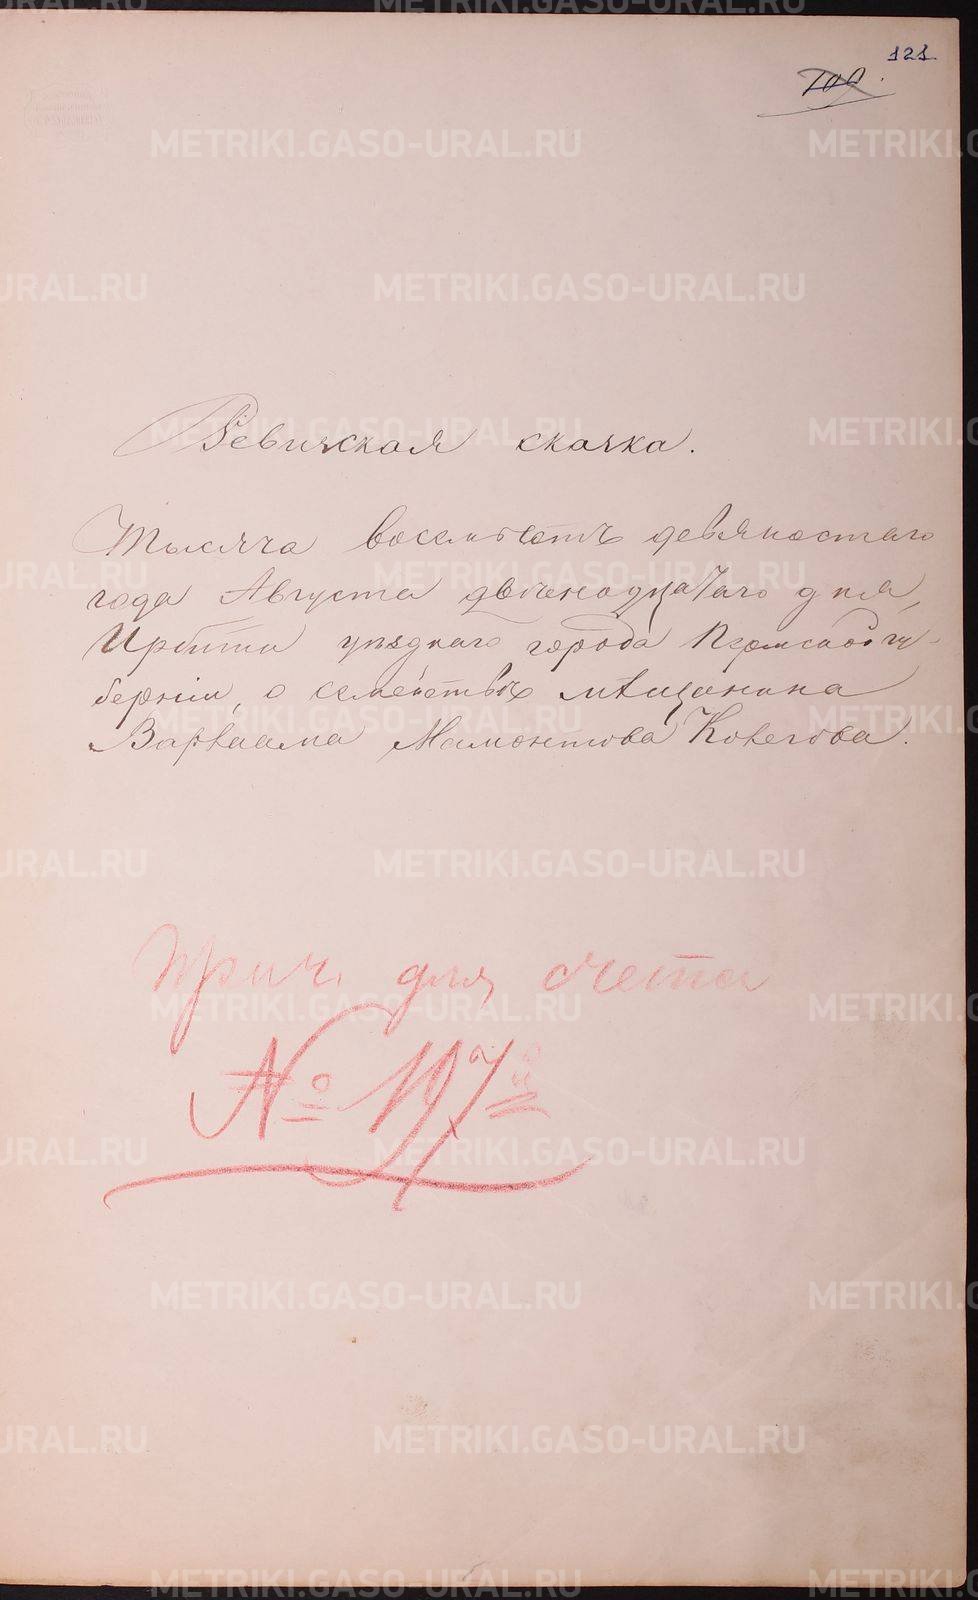 121
109.
Ревижская сказка.
Тысяча восемьсотъ девяностаго
года Августа двенадцатаго дня,
Ирбити уѣзднаго города Пермской гу-
берніи, о семействѣ мѣщанина
Варлаама Мамонтова
Прич. для счета
№ 197
METRIKI.GASO-URAL.RU